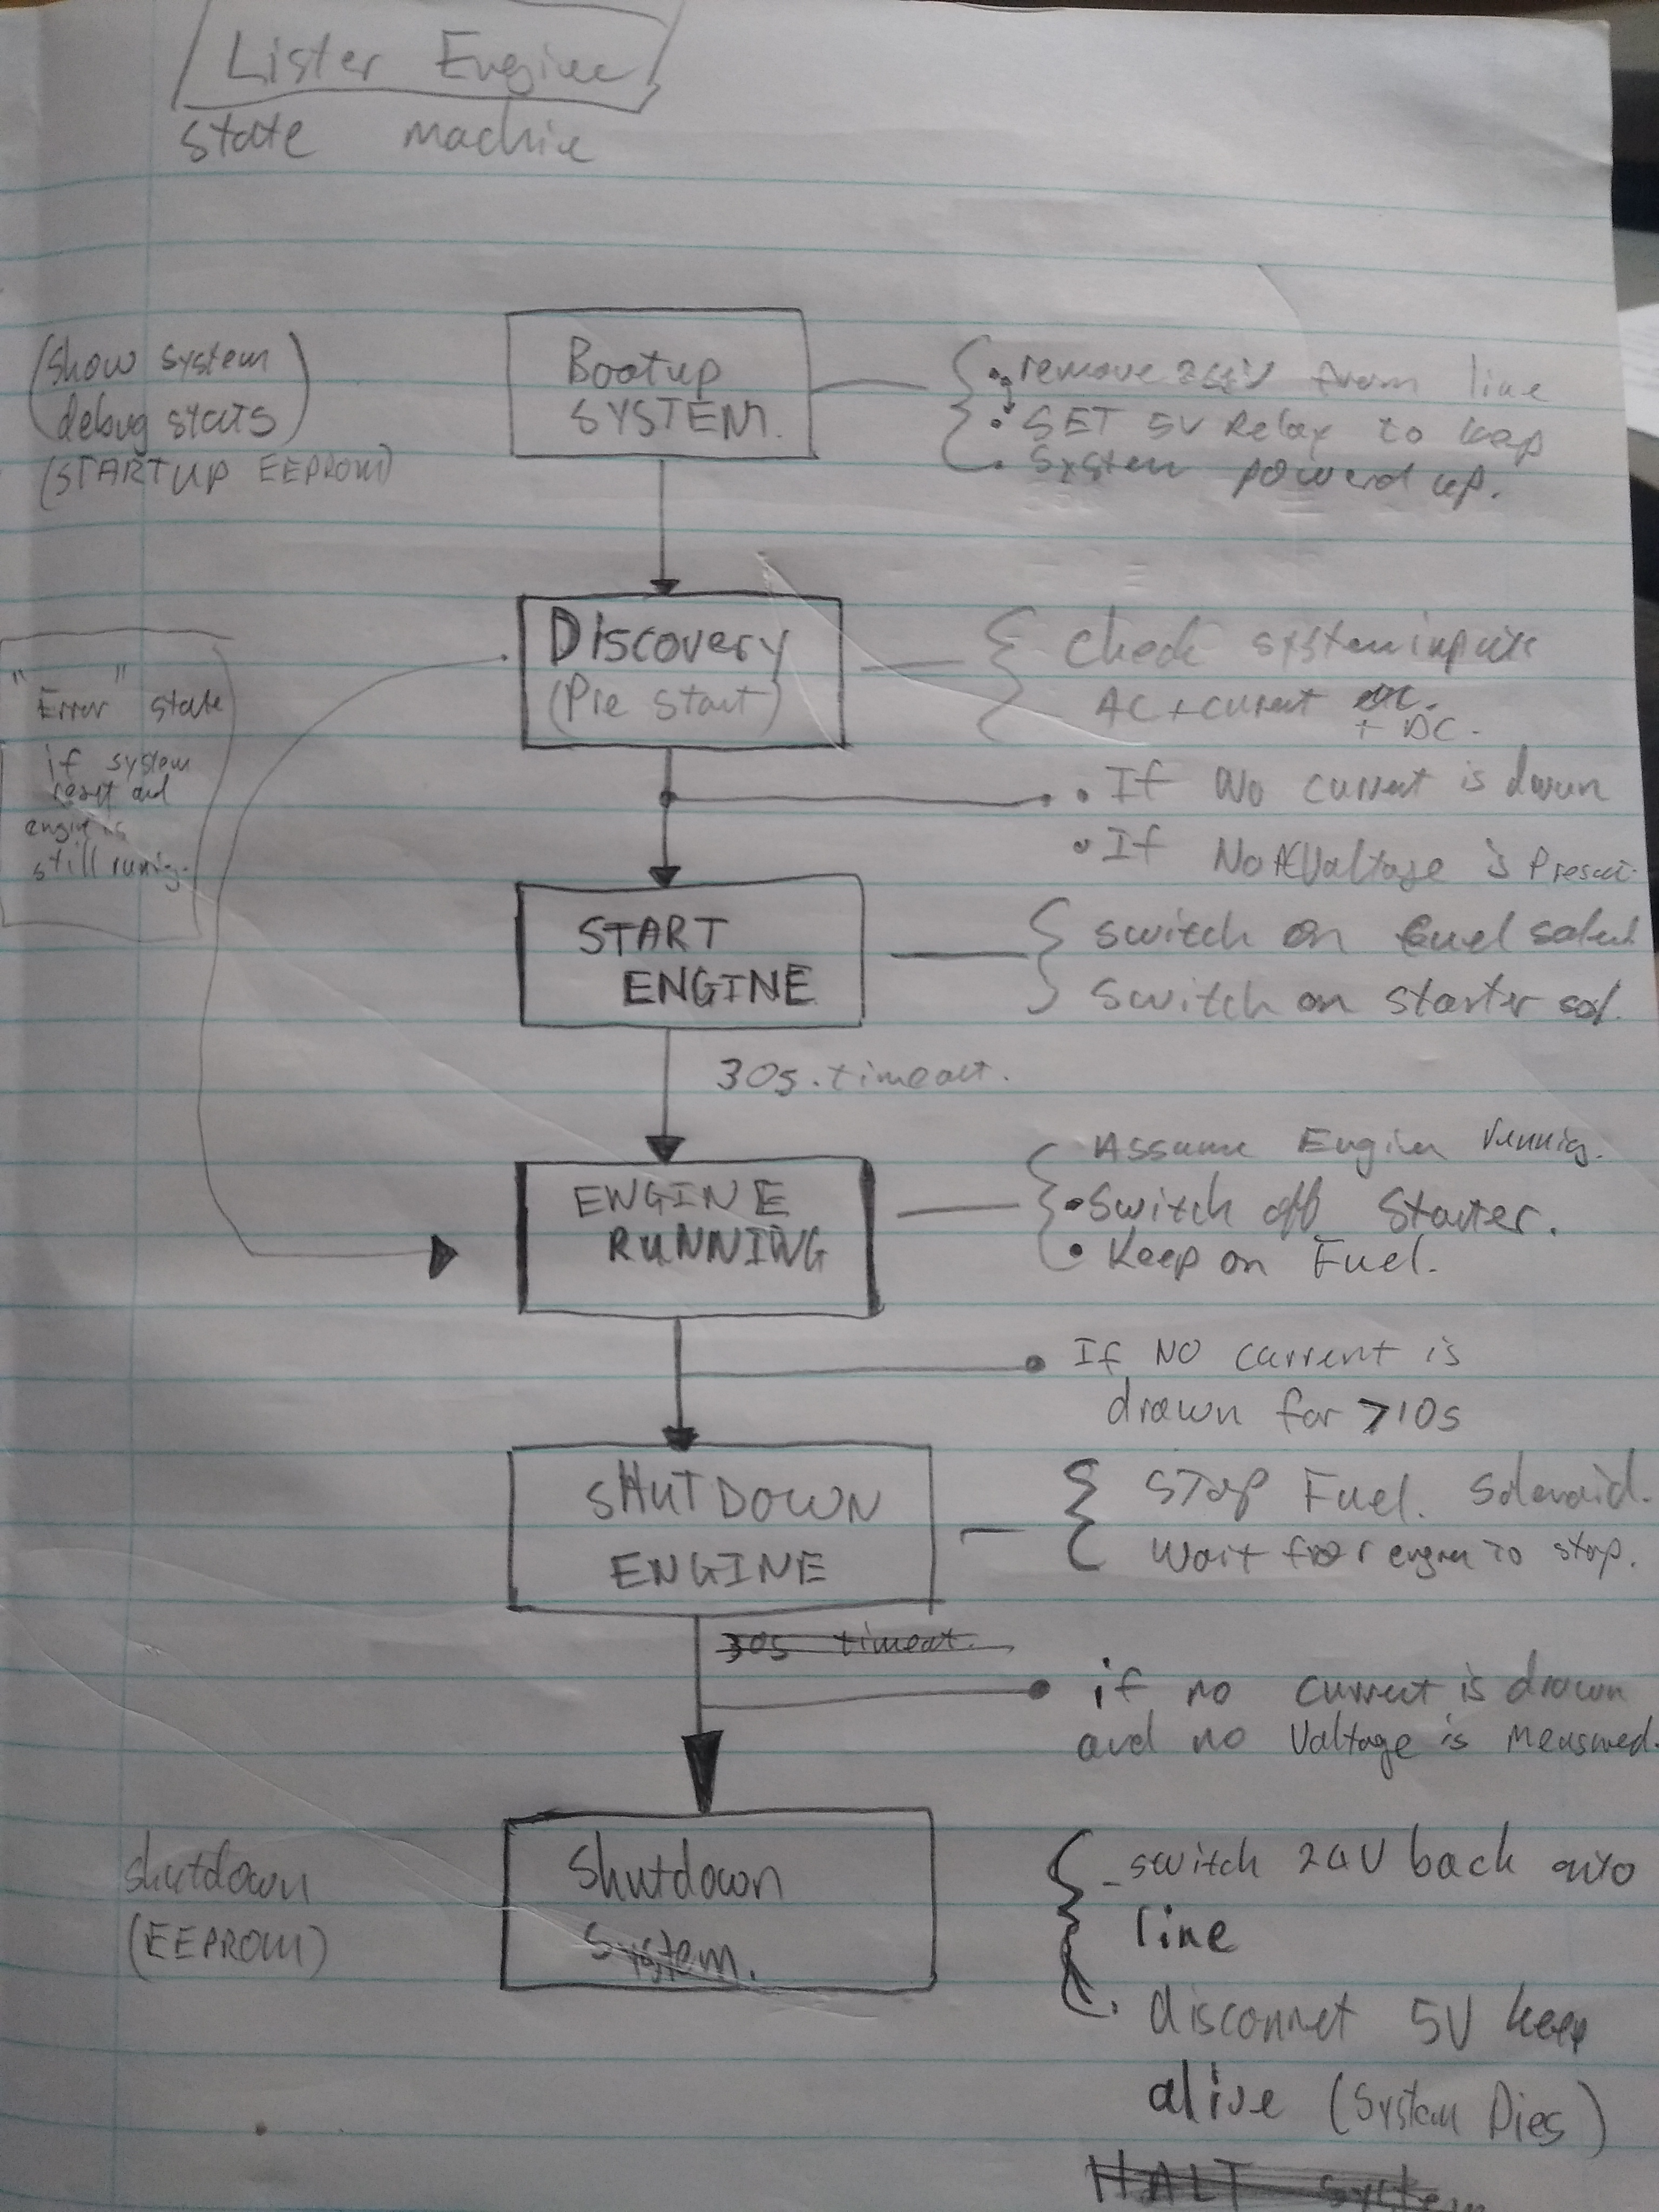 Lister Engine
state machine
(Show system
debug stats)
(STARTUP EEPROM)
Bootup
SYSTEM.
• remove 24V from line
• SET 5V Relay to keep
• System powerd up.
Discovery
(Pre start)
Check system inputs
AC + current
+ DC.
"Error" state
if system
reset and
engine is
still runing.
• If No current is drawn
• If No AC Voltage is Present.
START
ENGINE
switch on fuel
switch on starter sol.
30s. timeout.
ENGINE
RUNNING
Assume Engine running.
• Switch off Starter.
• Keep on Fuel.
If NO current is
drawn for >10s
SHUTDOWN
ENGINE
STOP Fuel. Solenoid.
Wait for engine to stop.
30s timeout.
if no current is drawn
and no Voltage is Measured.
shutdown
(EEPROM)
Shutdown
System.
- switch 24V back onto
line
. disconnet 5V keep
alive (System Dies)
HALT system